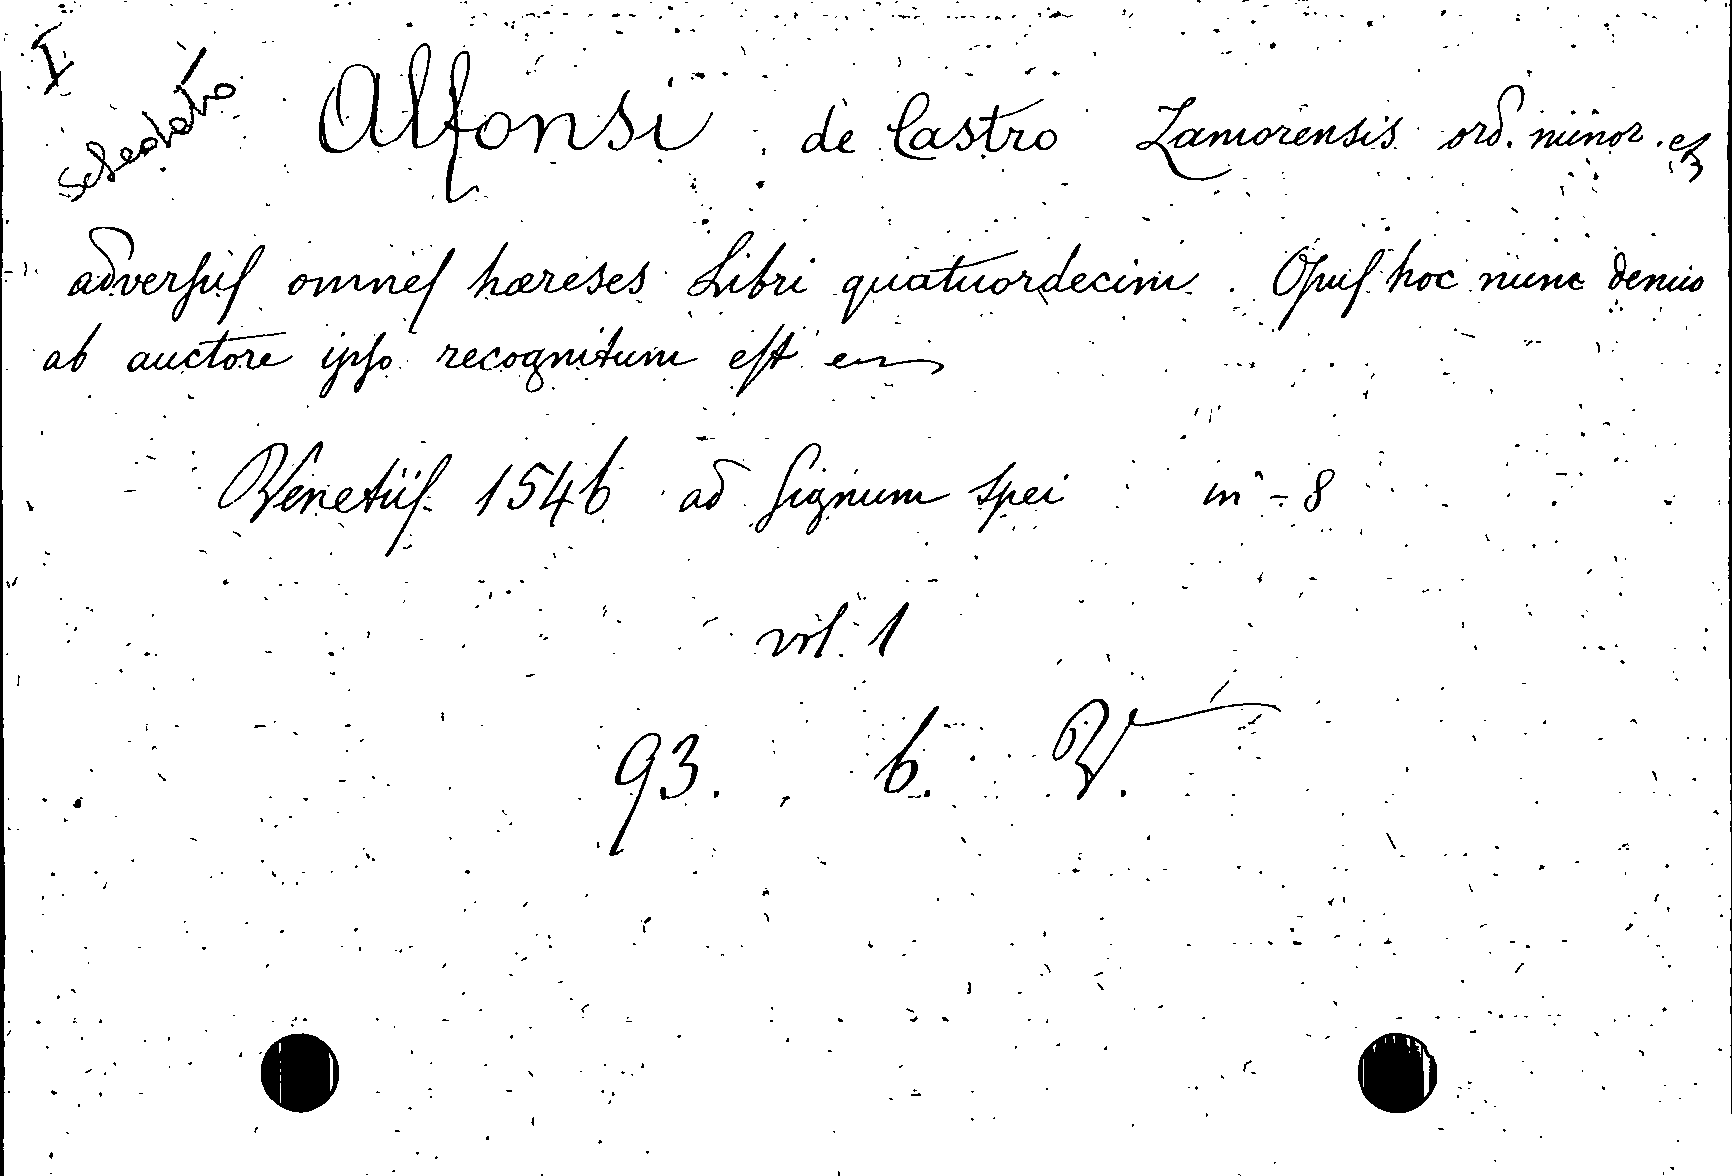 I
Schedato
Alfonsi de Castro Zamorensis ord. minor. et
adversus omnes hæreses Libri quatuordecim. Opus hoc nunc denuo
ab auctore ipso recognitum est
Venetiis 1546 ad signum spei in-8
vol. 1
93. b. V.